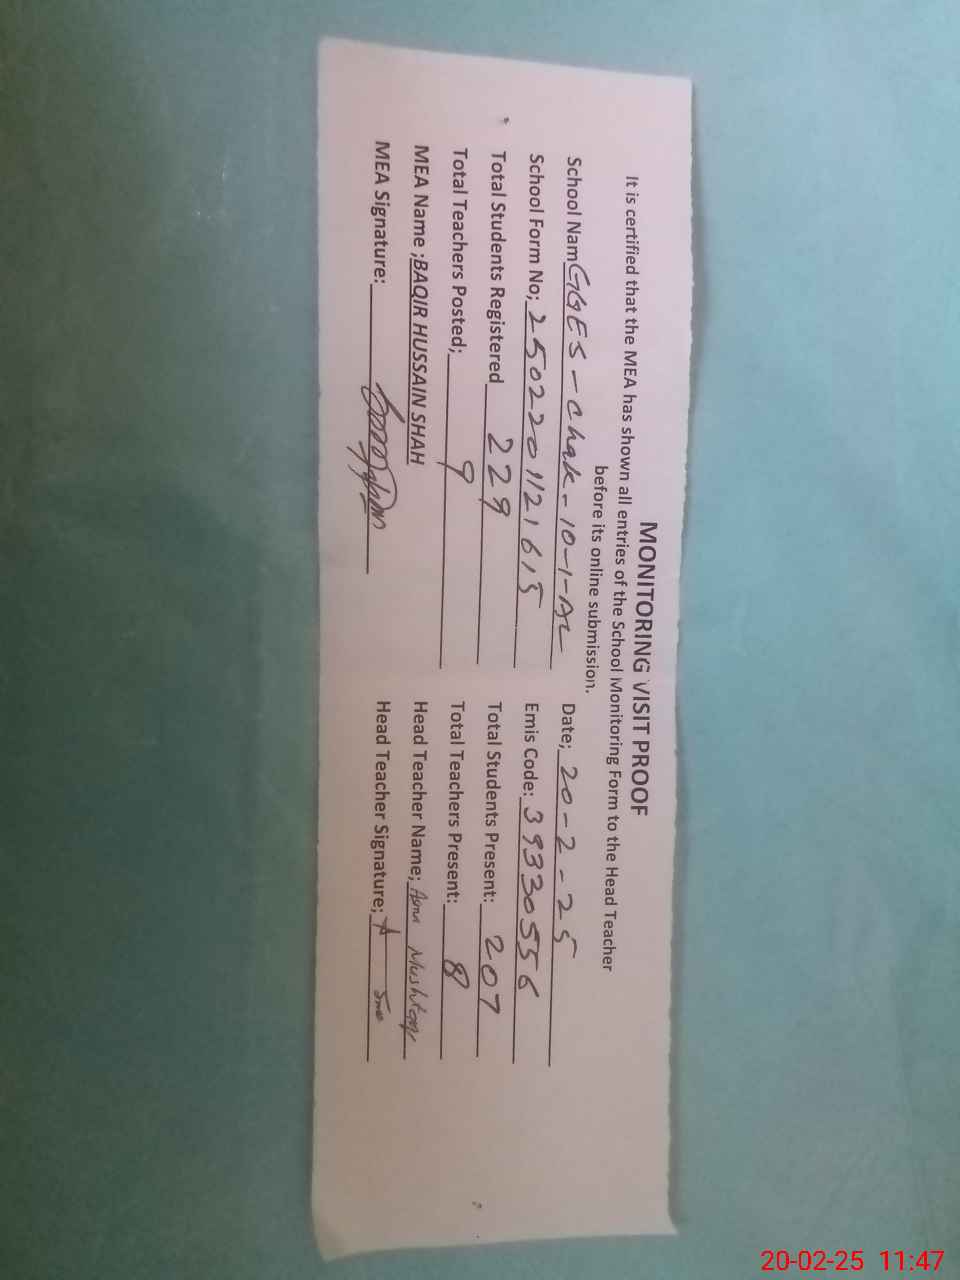 MONITORING VISIT PROOF
It is certified that the MEA has shown all entries of the School Monitoring Form to the Head Teacher
before its online submission.
School Nam GGES - Chak - 10-1-AL Date; 20-2-25
School Form No; 2502201121615 Emis Code: 39330556
Total Students Registered 229 Total Students Present: 207
Total Teachers Posted; 9 Total Teachers Present: 8
MEA Name ;BAQIR HUSSAIN SHAH Head Teacher Name; Asma Mushtaq
MEA Signature: Head Teacher Signature;
20-02-25 11:47